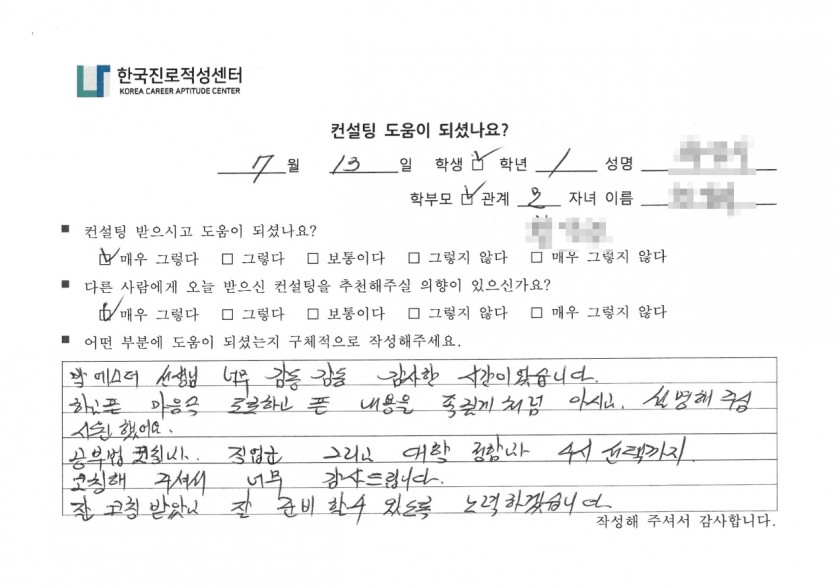 한국진로적성센터
KOREA CAREER APTITUDE CENTER
컨설팅 도움이 되셨나요?
7 월 13 일 학생 ☑ 학년 1 성명
학부모 ☑ 관계 모 자녀 이름
■ 컨설팅 받으시고 도움이 되셨나요?
☑ 매우 그렇다 □ 그렇다 □ 보통이다 □ 그렇지 않다 □ 매우 그렇지 않다
■ 다른 사람에게 오늘 받으신 컨설팅을 추천해주실 의향이 있으신가요?
☑ 매우 그렇다 □ 그렇다 □ 보통이다 □ 그렇지 않다 □ 매우 그렇지 않다
■ 어떤 부분에 도움이 되셨는지 구체적으로 작성해주세요.
박 에스더 선생님 너무 감동 감동 감사한 시간이었습니다.
하고픈 마음속 하고 픈 내용을 족집게처럼 아시고. 설명해 주심
시원 했어요.
공부법 직업군 그리고 대학 4서 선택까지
코칭해 주셔서 너무 감사드립니다.
잘 코칭 받았고 잘 준비 할수 있도록 노력하겠습니다.
작성해 주셔서 감사합니다.